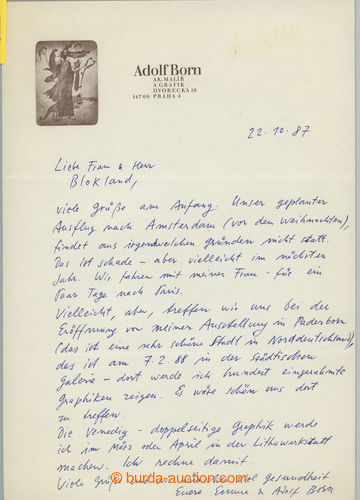 Adolf Born
AK. MALÍŘ
A GRAFIK
DVORECKÁ 18
147 00 PRAHA 4
22. 10. 87
Liebe Frau & Herr
Blokland,
viele Grüße am Anfang. Unser geplanter
Ausflug nach Amsterdam (vor den Weihnachten),
findet aus irgendwelchen gründen nicht statt.
Das ist schade – aber vielleicht im nächsten
Jahr. Wir fahren mit meiner Frau – für ein
Paar Tage nach Paris.
Vielleicht, aber, treffen wir uns bei der
Eröffnung von meiner Ausstellung in Paderborn
(das ist eine sehr schöne Stadt in Norddeutschland),
das ist am 7. 2. 88 in der Städtischen
Galerie – dort werde ich hundert eingerahmte
Graphiken zeigen. Es wäre schön uns dort
zu treffen.
Die Venedig – doppelseitige Graphik werde
ich im März oder April in der Lithowerkstatt
machen. Ich rechne damit.
Viele Grüße und gesundheit
Euere Emma & Adolf Born
© www.burda-auction.com